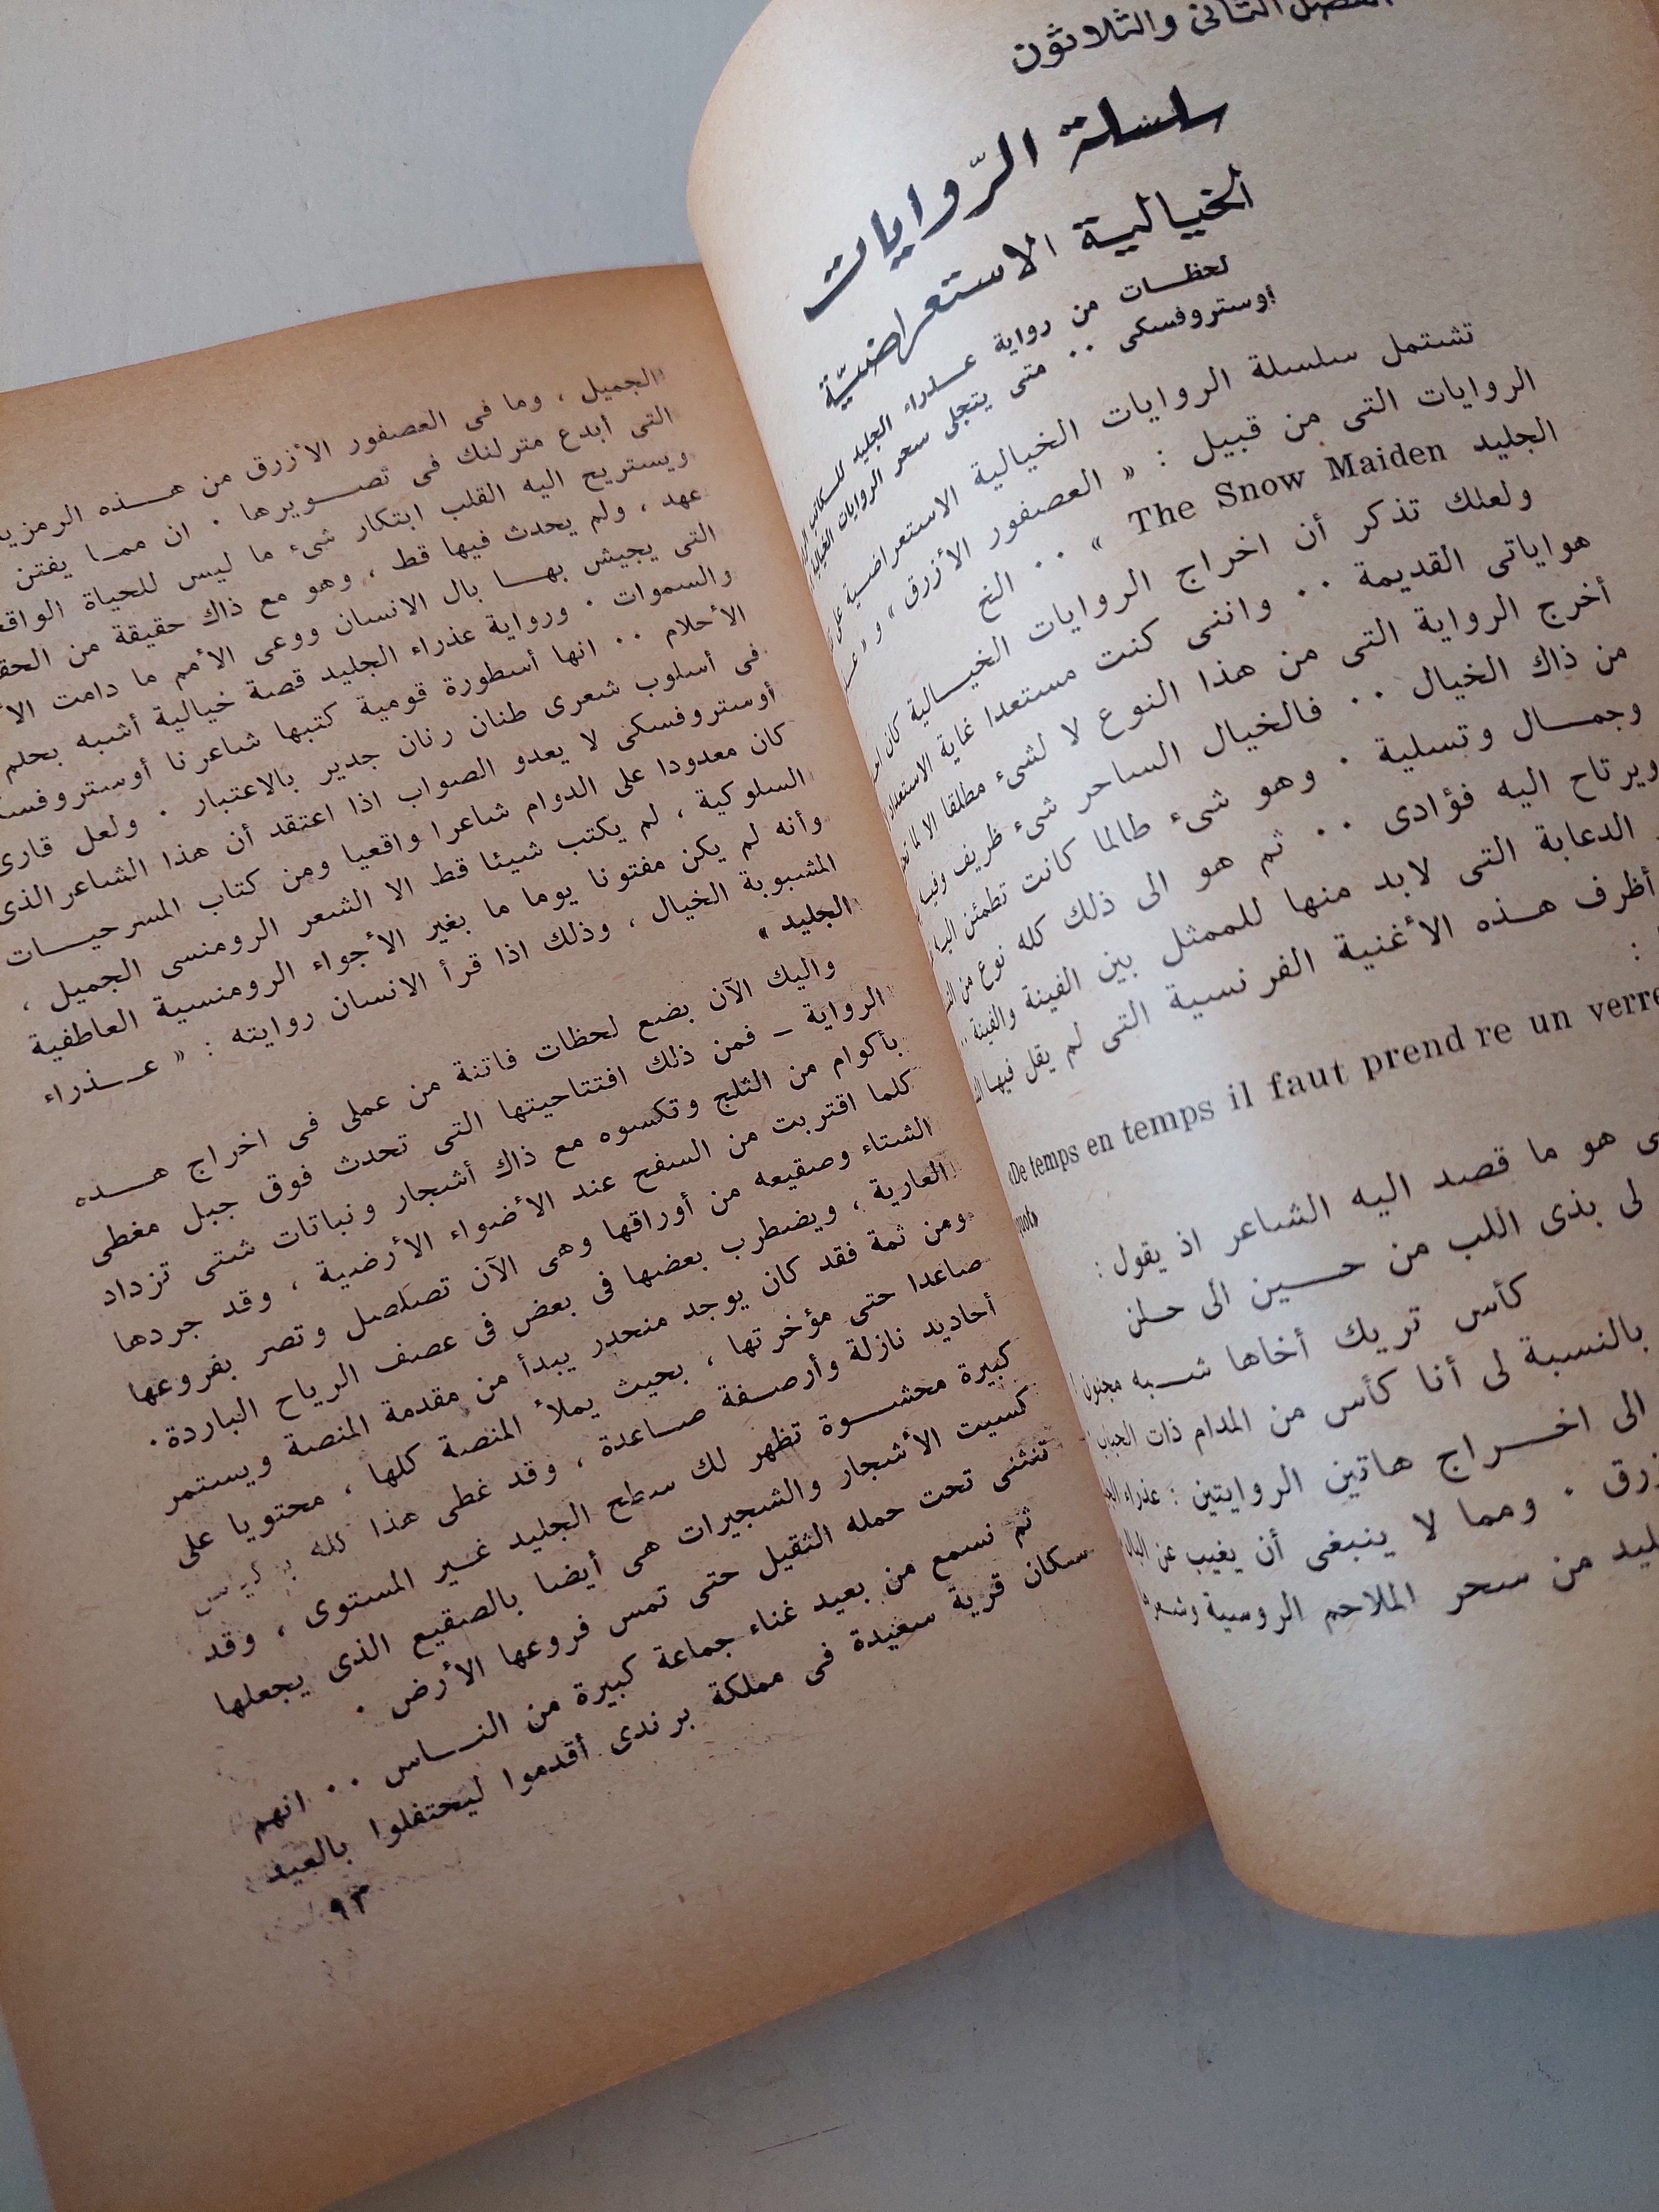 الفصل الثانى والثلاثون
سلسلة الرّوايات
الخيالية الاستعراضيّة
لحظـــات من رواية عـــذراء الجليد للكاتب
أوستروفسكى . . متى يتجلى سحر الروايات الخيالية
تشتمل سلسلة الروايات الخيالية الاستعراضية على
الروايات التى من قبيل : « العصفور الأزرق » و «
الجليد The Snow Maiden » . . الخ
ولعلك تذكر أن اخراج الروايات الخيـــالية كان
هواياتى القديمة . . واننى كنت مستعدا غاية الاستعداد
أخرج الرواية التى من هذا النوع لا لشىء مطلقا الا لما
من ذاك الخيال . . فالخيال الساحر شىء ظريف وفيه
وجمـــال وتسلية . وهو شىء طالما كانت تطمئن اليه
ويرتاح اليه فؤادى . . ثم هو الى ذلك كله نوع من
الدعابة التى لابد منها للممثل بين الفينة والفينة . .
أظرف هـــذه الأغنية الفرنسية التى لم يقل فيها
:
«De temps en temps il faut prend re un verre
هو ما قصد اليه الشاعر اذ يقول :
لى بذى اللب من حـــين الى حـين
كأس تريك أخاها شـــبه مجنون !
بالنسبة لى أنا كأس من المدام ذات الحباب
الى اخـــراج هاتين الروايتين : عذراء
. ومما لا ينبغى أن يغيب عن البال
من سحر الملاحم الروسية وشعرها
الجميل ، وما فى العصفور الأزرق من هـــذه
التى أبدع مترلنك فى تصـــويرها . ان ممـــا يفتن
ويستريح اليه القلب ابتكار شىء ما ليس للحياة
عهد ، ولم يحدث فيها قط ، وهو مع ذاك حقيقة من
التى يجيش بهـــا بال الانسان ووعى الأمم ما دامت
والسموات . ورواية عذراء الجليد قصة خيالية أشبه بحلم
الأحلام . . انها أسطورة قومية كتبها شاعرنا
فى أسلوب شعرى طنان رنان جدير بالاعتبار . ولعل
أوستروفسكى لا يعدو الصواب اذا اعتقد أن هذا الشاعر الذى
كان معدودا على الدوام شاعرا واقعيا ومن كتاب المسرحيـــات
السلوكية ، لم يكتب شيئا قط الا الشعر الرومنسى الجميل ،
وأنه لم يكن مفتونا يوما ما بغير الأجواء الرومنسية العاطفية
المشبوبة الخيال ، وذلك اذا قرأ الانسان روايته : « عـــذراء
الجليد »
واليك الآن بضع لحظات فاتنة من عملى فى اخراج هـــذه
الرواية – فمن ذلك افتتاحيتها التى تحدث فوق جبل مغطى
بأكوام من الثلج وتكسوه مع ذاك أشجار ونباتات شتى تزداد
كلما اقتربت من السفح عند الأضواء الأرضية ، وقد جردها
الشتاء وصقيعه من أوراقها وهى الآن تصلصل وتصر بفروعها
العارية ، ويضطرب بعضها فى بعض فى عصف الرياح الباردة.
ومن ثمة فقد كان يوجد منحدر يبدأ من مقدمة المنصة ويستمر
صاعدا حتى مؤخرتها ، بحيث يملأ المنصة كلها ، محتويا على
أخاديد نازلة وأرصـــفة صـــاعدة ، وقد غطى هذا كله
كبيرة محشـــوة تظهر لك سطح الجليد غـــير المستوى ، وقد
كسيت الأشجار والشجيرات هى أيضا بالصقيع الذى يجعلها
تنثنى تحت حمله الثقيل حتى تمس فروعها الأرض .
ثم نسمع من بعيد غناء جماعة كبيرة من النـــاس . . انهم
سكان قرية سعيدة فى مملكة برندى أقدموا ليحتفلوا بالعيد
٩٣